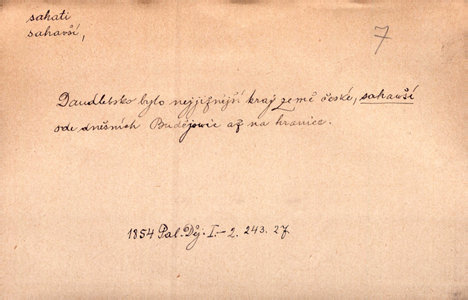 sahati
sahavší,
7
Daudlebsko bylo nejjižnější kraj země české, sahavší
ode dnešních Budějowic až na hranice.
1854 Pal. Děj. I.-2. 243. 27.